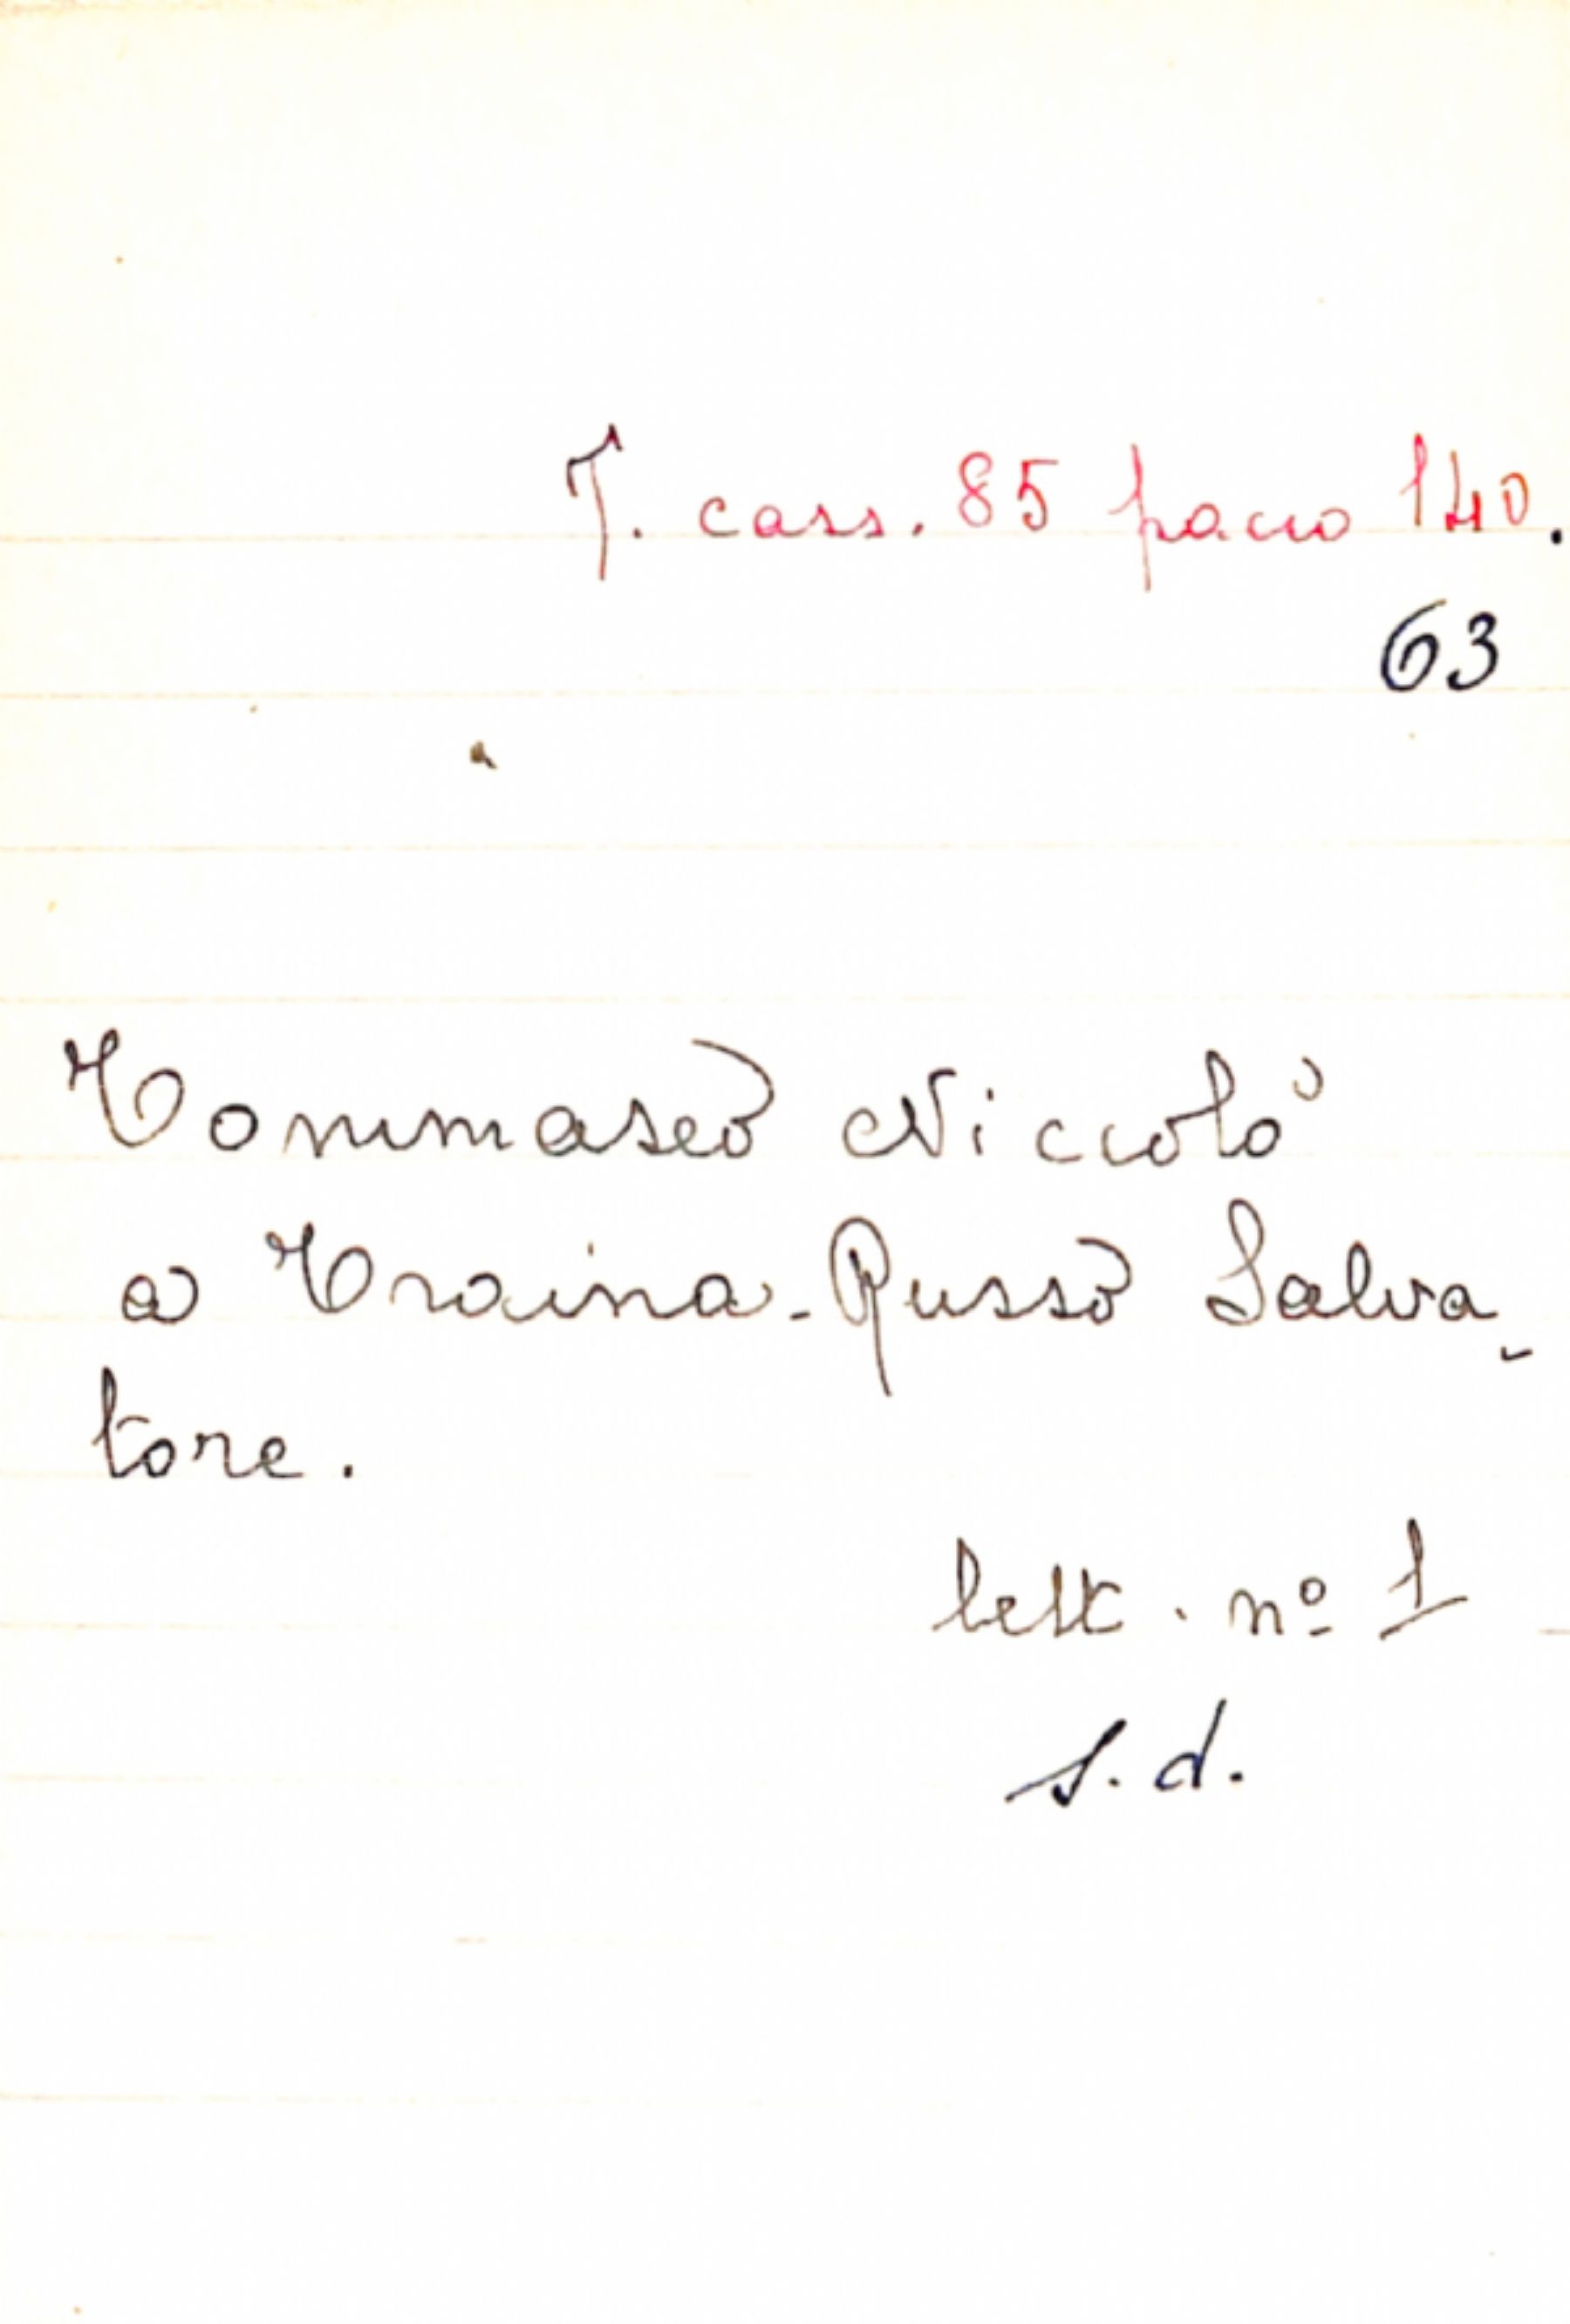 T. cass. 85 pacco 140.
63
Tommaseo Niccolò
a Traina-Russo Salva-
tore.
lett. nº 1
s.d.